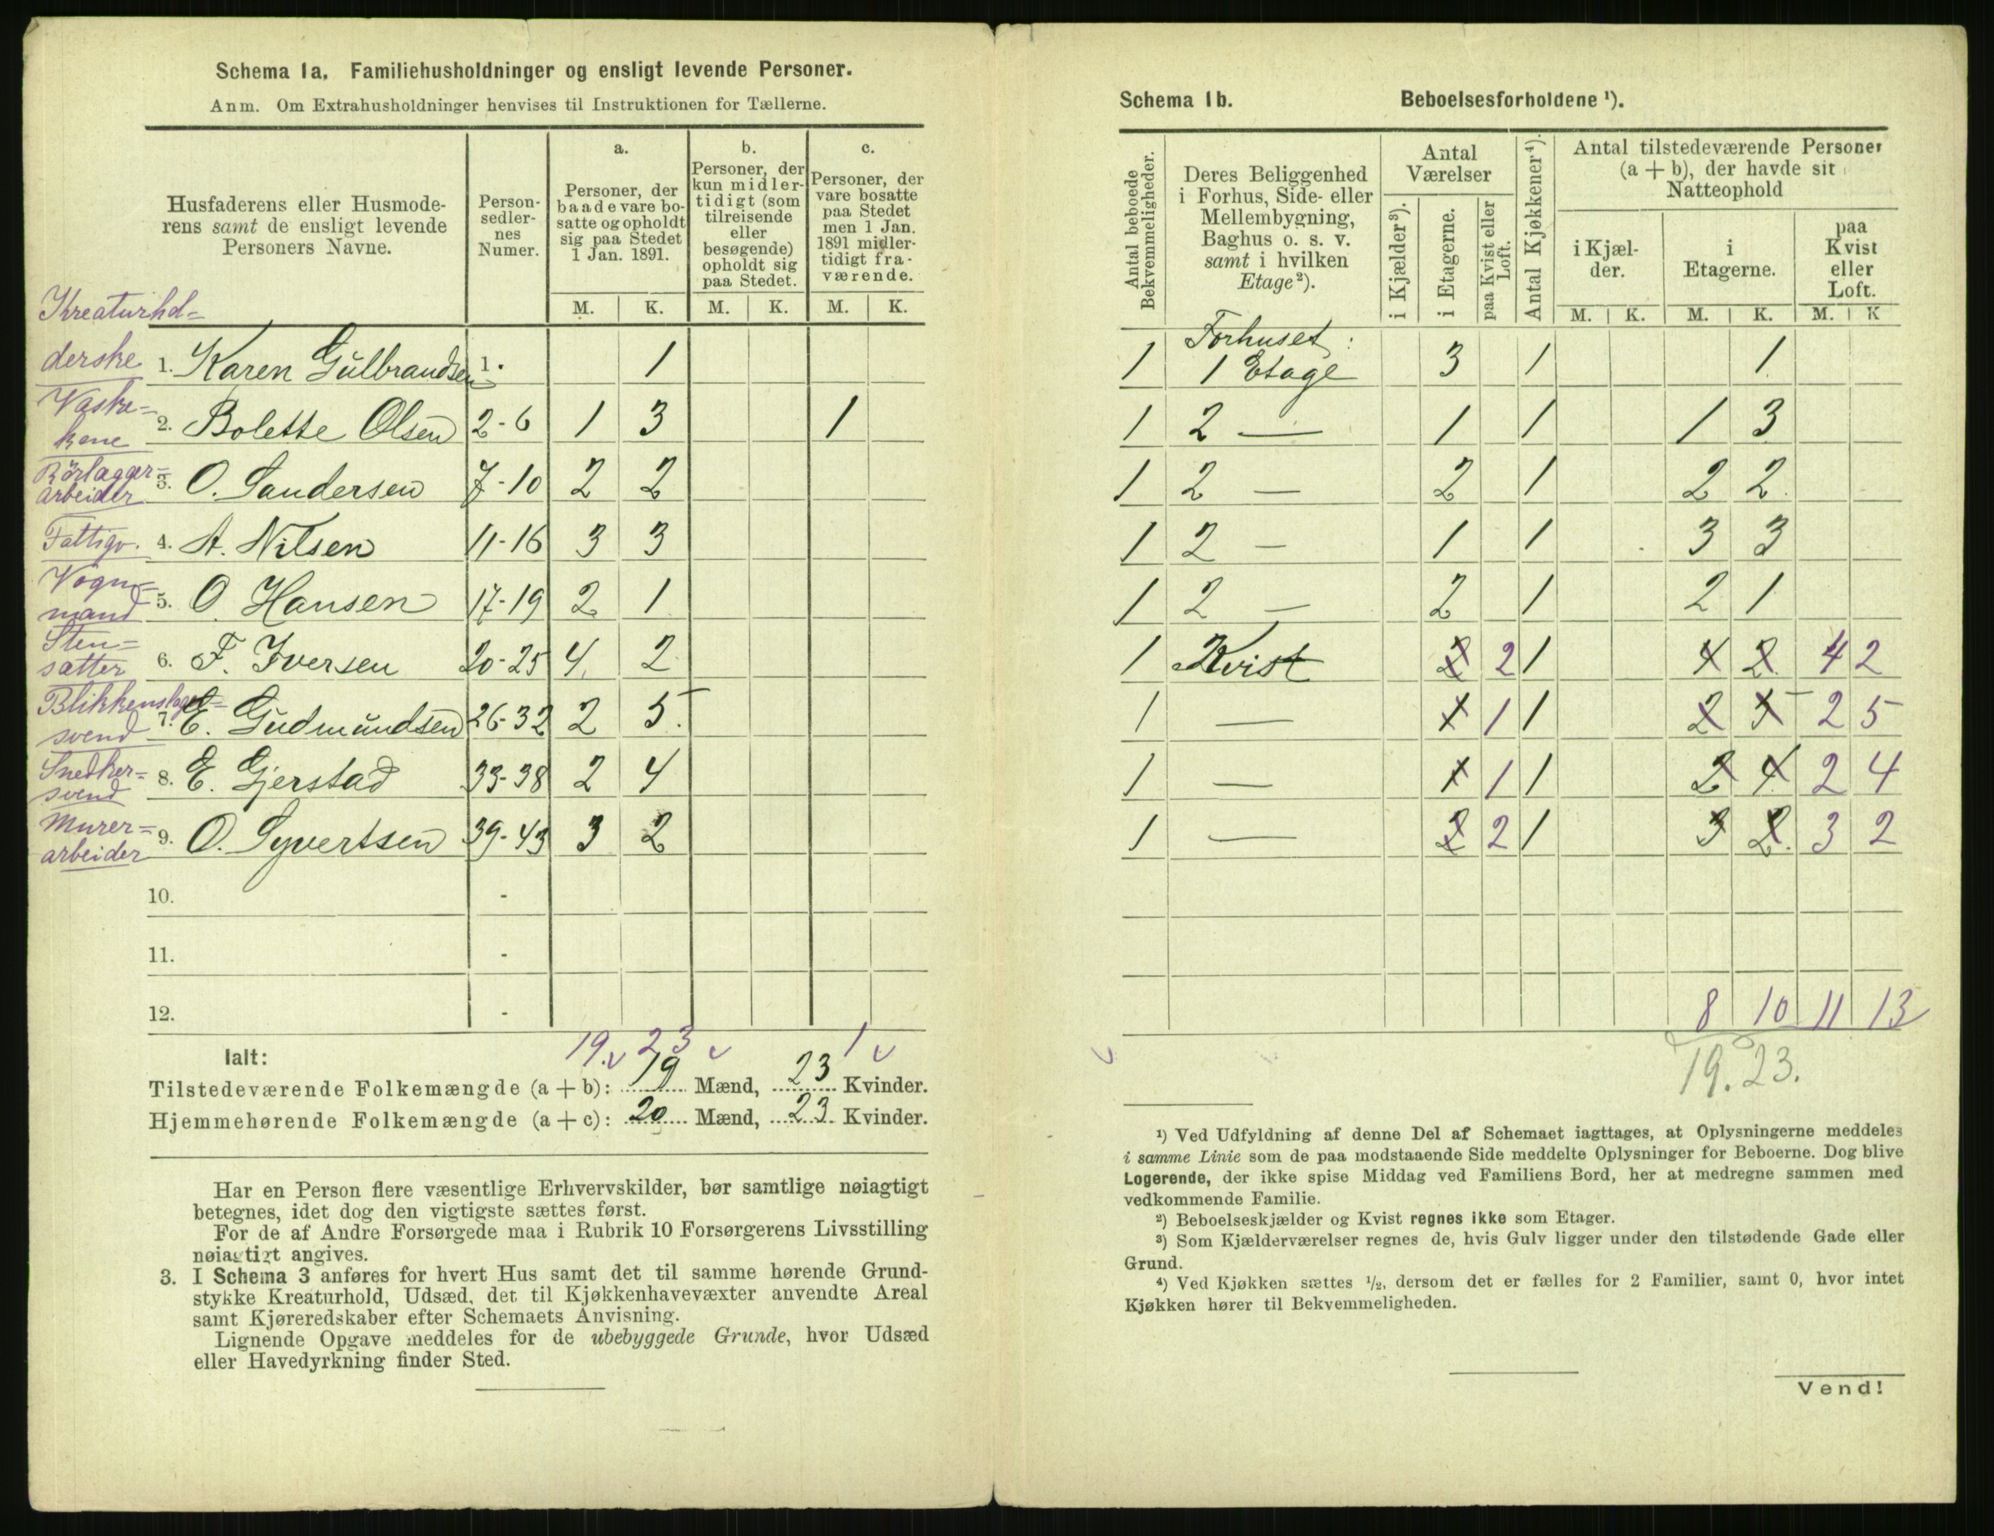 Schema 1a. Familiehusholdninger og ensligt levende Personer.
Anm. Om Extrahusholdninger henvises til Instruktionen for Tællerne.
Husfaderens eller Husmoderens samt de ensligt levende Personers Navne.
Person-sedlernes Numer.
a.
Personer, der baade vare bosatte og opholdt sig paa Stedet 1 Jan. 1891.
b.
Personer, der kun midlertidigt (som tilreisende eller besøgende) opholdt sig paa Stedet.
c.
Personer, der vare bosatte paa Stedet men 1 Jan. 1891 midlertidigt fraværende.
M. K. M. K. M. K.
Kreaturhd=
derske 1. Karen Gulbrandsen 1. 1
Vaske=
kone 2. Bolette Olsen 2-6 1 3 1
Rörlægger=
arbeider 3. O. Sandersen 7-10 2 2
Fattigv. 4. A. Nilsen 11-16 3 3
Vogn=
mand 5. O. Hansen 17-19 2 1
Sten=
sætter 6. F. Iversen 20-25 4 2
Blikkenslager=
svend 7. E. Gudmundsen 26-32 2 5
Snedker=
svend 8. E. Gjerstad 33-38 2 4
Murer=
arbeider 9. O. Syvertsen 39-43 3 2
10. -
11. -
12. -
19. 23 1
Ialt:
Tilstedeværende Folkemængde (a + b): 19 Mænd, 23 Kvinder.
Hjemmehørende Folkemængde (a + c): 20 Mænd, 23 Kvinder.
Har en Person flere væsentlige Erhvervskilder, bør samtlige nøiagtigt
betegnes, idet dog den vigtigste sættes først.
For de af Andre Forsørgede maa i Rubrik 10 Forsørgerens Livsstilling
nøiagtigt angives.
3. I Schema 3 anføres for hvert Hus samt det til samme hørende Grund-
stykke Kreaturhold, Udsæd, det til Kjøkkenhavevæxter anvendte Areal
samt Kjøreredskaber efter Schemaets Anvisning.
Lignende Opgave meddeles for de ubebyggede Grunde, hvor Udsæd
eller Havedyrkning finder Sted.
Schema 1b. Beboelsesforholdene ¹).
Antal beboede Bekvemmeligheder.
Deres Beliggenhed i Forhus, Side- eller Mellembygning, Baghus o. s. v. samt i hvilken Etage²).
Antal Værelser
i Kjælder³).
i Etagerne.
paa Kvist eller Loft.
Antal Kjøkkener⁴).
Antal tilstedeværende Personer (a + b), der havde sit Natteophold
i Kjælder.
i Etagerne.
paa Kvist eller Loft.
M. K. M. K. M. K
Forhuset:
1 1 Etage 3 1 1
1 2 — 1 1 1 3
1 2 — 2 1 2 2
1 2 — 1 1 3 3
1 2 — 2 1 2 1
1 Kvist 2 2 1 4 2 4 2
1 — 1 1 1 2 5 2 5
1 — 1 1 1 2 4 2 4
1 — 2 2 1 3 2 3 2
8 10 11 13
19. 23.
¹) Ved Udfyldning af denne Del af Schemaet iagttages, at Oplysningerne meddeles
i samme Linie som de paa modstaaende Side meddelte Oplysninger for Beboerne. Dog blive
Logerende, der ikke spise Middag ved Familiens Bord, her at medregne sammen med
vedkommende Familie.
²) Beboelseskjælder og Kvist regnes ikke som Etager.
³) Som Kjælderværelser regnes de, hvis Gulv ligger under den tilstødende Gade eller
Grund.
⁴) Ved Kjøkken sættes ¹/₂, dersom det er fælles for 2 Familier, samt 0, hvor intet
Kjøkken hører til Bekvemmeligheden.
Vend!